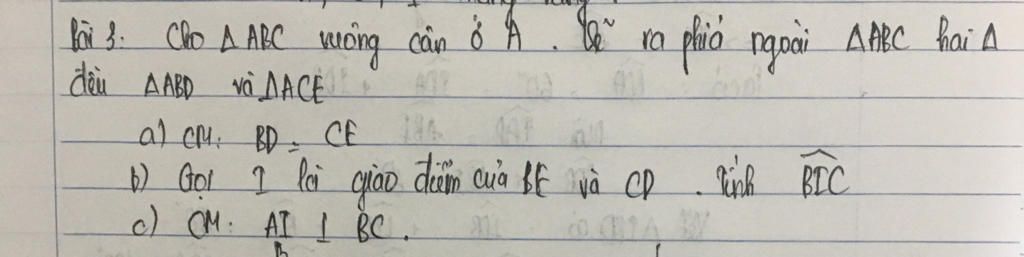 Bài 3. Cho Δ ABC vuông cân ở A. Vẽ ra phía ngoài ΔABC hai Δ
đều ΔABD và ΔACE
a) CM: BD = CE
b) Gọi I là giao điểm của BE và CD. Tính \widehat{BIC}
c) CM: AI ⊥ BC.